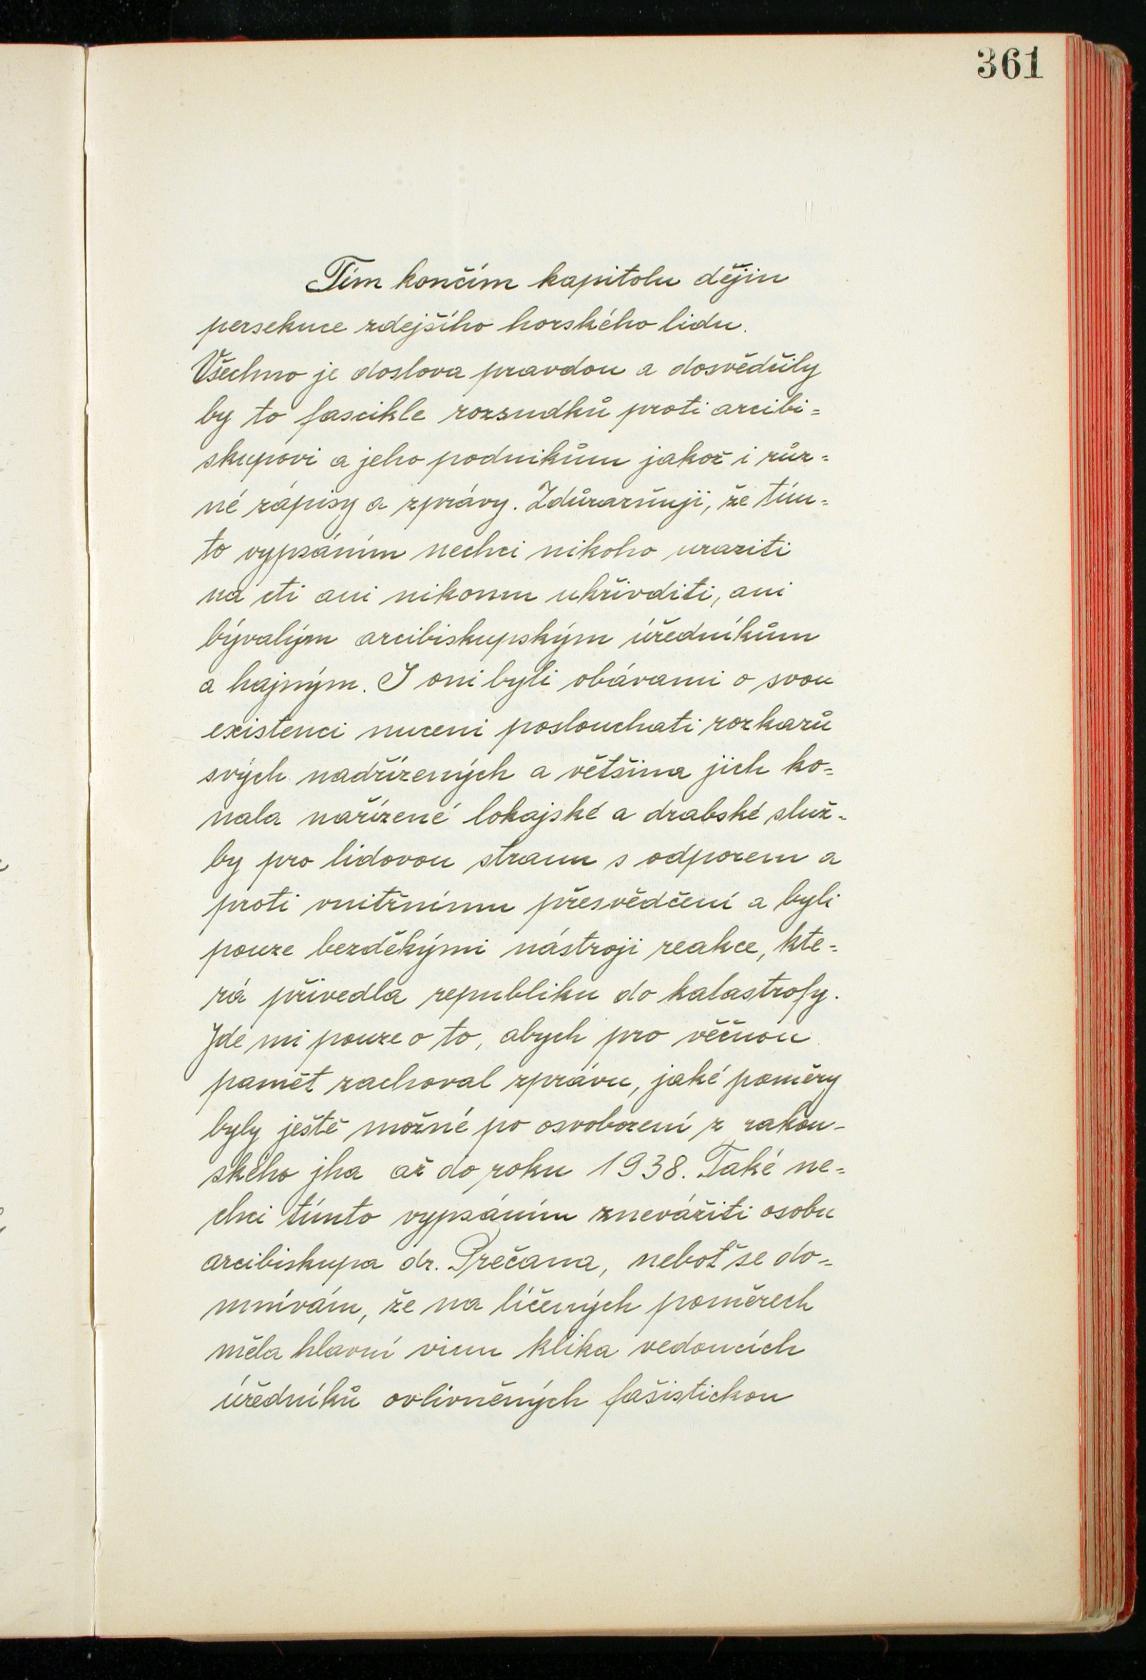 361
Tím končím kapitolu dějin
persekuce zdejšího horského lidu.
Všechno je doslova pravdou a dosvědčily
by to fascikle rozsudků proti arcibi=
skupovi a jeho podnikům jakož i růz=
né zápisy a zprávy. Zdůrazňuji, že tím=
to vypsáním nechci nikoho uraziti
na cti ani nikomu ukřivditi, ani
bývalým arcibiskupským úředníkům
a hajným. I oni byli obávami o svou
existenci nuceni poslouchati rozkazů
svých nadřízených a většina jich ko=
nala nařízené lokajské a drabské služ=
by pro lidovou stranu s odporem a
proti vnitřnímu přesvědčení a byli
pouze bezděkými nástroji reakce, kte=
rá přivedla republiku do katastrofy.
Jde mi pouze o to, abych pro věčnou
pamět zachoval zprávu, jaké poměry
byly ještě možné po osvobození z rakou-
ského jha až do roku 1938. Také ne=
chci tímto vypsáním znevážiti osobu
arcibiskupa dr. Prečana, neboť se do=
mnívám, že na líčených poměrech
měla hlavní vinu klika vedoucích
úředníků ovlivněných fašistickou